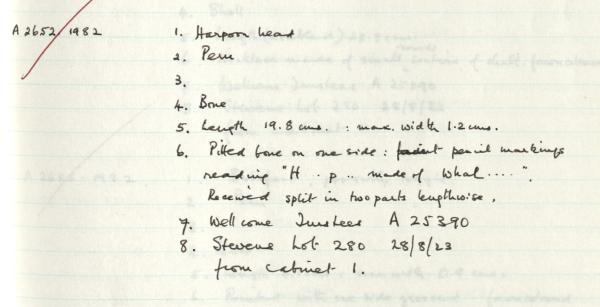 A 2652/1982
1. Harpoon head
2. Peru
3.
4. Bone
5. Length 19.8 cms. : max. width 1.2 cms.
6. Pitted bone on one side : faint pencil markings
reading "H . p .. made of Whal ....".
Received split in two parts lengthwise.
7. Wellcome Trustees A 25390
8. Stevens Lot 280 28/8/23
from Cabinet 1.